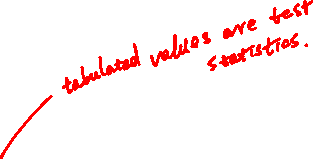 tabulated values are test
statistics.